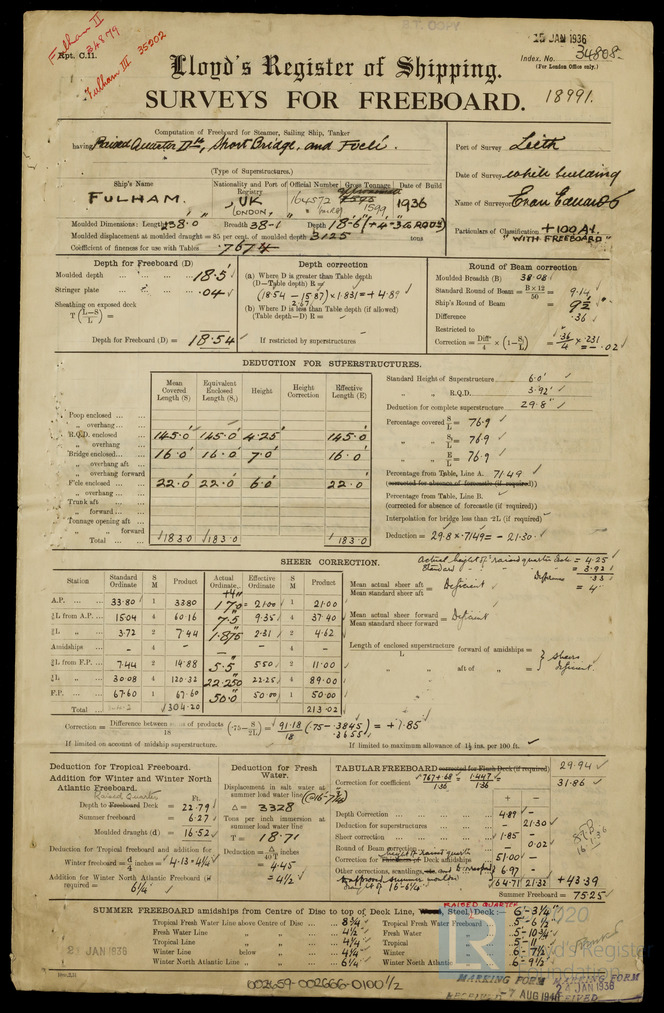 Fulham II
34879
Fulham III 35202
Rpt. C.11.
B.T. COPY
25 JAN 1936
Index. No. 34808.
(For London Office only.)
Lloyd's Register of Shipping.
SURVEYS FOR FREEBOARD.
18991.
Computation of Freeboard for Steamer, Sailing Ship, Tanker
having Raised Quarter Dk, Short Bridge, and Focl.
(Type of Superstructures.)
Port of Survey Leith
Date of Survey while building
Name of Surveyor Evan Edwards
Particulars of Classification +100A1.
"WITH FREEBOARD"
Ship's Name
FULHAM.
Nationality and Port of Registry
UK
LONDON,
Official Number
164572
Gross Tonnage
approximate
1599
Date of Build
1936
Moulded Dimensions: Length 238.0 Breadth 38-1 Depth 18'6" (+4" = 3'6 RQD)
Moulded displacement at moulded draught = 85 per cent. of moulded depth 3125 tons
Coefficient of fineness for use with Tables .7674
Depth for Freeboard (D)
Moulded depth ... 18.5
Stringer plate ... .04
Sheathing on exposed deck
T (L-S/L) =
Depth for Freeboard (D) = 18.54
Depth correction
(a) Where D is greater than Table depth
(D—Table depth) R =
(18.54 - 15.87) × 1.831 = + 4.89
2.67
(b) Where D is less than Table depth (if allowed)
(Table depth—D) R =
If restricted by superstructures
Round of Beam correction
Moulded Breadth (B) 38.08
Standard Round of Beam = B × 12/50 = 9.14
Ship's Round of Beam = 9½"
Difference .36
Restricted to
Correction = Diff/4 × (1 − S1/L) = .36/4 × .231
= -.02
DEDUCTION FOR SUPERSTRUCTURES.
Mean Covered Length (S) Equivalent Enclosed Length (S1) Height Height Correction Effective Length (E)
Poop enclosed ...
„ overhang ...
R.Q.D. enclosed 145.0 145.0 4.25 145.0
„ overhang
Bridge enclosed ... 16.0 16.0 7.0 16.0
„ overhang aft
„ overhang forward
F'cle enclosed ... 22.0 22.0 6.0 22.0
„ overhang ...
Trunk aft
„ forward ...
Tonnage opening aft
„ „ forward
Total ... 183.0 183.0 183.0
Standard Height of Superstructure 6.0
„ „ R.Q.D. 3.92
Deduction for complete superstructure 29.8"
Percentage covered S/L = 76.9
„ „ S1/L = 76.9
„ „ E/L = 76.9
Percentage from Table, Line A. 71.49
(corrected for absence of forecastle (if required))
Percentage from Table, Line B.
(corrected for absence of forecastle (if required))
Interpolation for bridge less than ·2L (if required)
Deduction = 29.8 × .7149 = - 21.30
SHEER CORRECTION.
Actual height of raised quarter deck = 4.25
Standard = 3.92
Difference = .33
= 4"
Station Standard Ordinate S M Product Actual Ordinate Effective Ordinate S M Product
+4"
A.P. ... 33.80 1 33.80 17.0 = 21.00 1 21.00
⅙L from A.P. ... 15.04 4 60.16 7.5" 9.35 4 37.40
⅓L „ 3.72 2 7.44 1.875 2.31 2 4.62
Amidships - 4 - - - 4 -
⅓L from F.P. ... 7.44 2 14.88 5.5" 5.50 2 11.00
⅙L „ 30.08 4 120.32 22.250 22.25 4 89.00
F.P. ... 67.60 1 67.60 50.0 50.00 1 50.00
Total ... 304.20 213.02
Mean actual sheer aft / Mean standard sheer aft = Deficient
Mean actual sheer forward / Mean standard sheer forward = Deficient
Length of enclosed superstructure / L forward of amidships =
„ „ aft of „ =
} Sheers deficient
Correction = Difference between sums of products/18 (·75 − S/2L) = 91.18/18 (.75 - .3845) = + 1.85
.3655
If limited on account of midship superstructure.
If limited to maximum allowance of 1½ ins. per 100 ft.
Deduction for Tropical Freeboard.
Addition for Winter and Winter North Atlantic Freeboard.
Raised Quarter
Ft.
Depth to Freeboard Deck = 22.79
Summer freeboard = 6.27
Moulded draught (d) = 16.52
Deduction for Tropical freeboard and addition for
Winter freeboard = d/4 inches = 4.13 = 4¼
Addition for Winter North Atlantic Freeboard (if required) = 6¼
Deduction for Fresh Water.
Displacement in salt water at summer load water line
Δ = 3328
Tons per inch immersion at summer load water line
T = 18.71
Deduction = Δ/40T inches
= 4.45
= 4½
TABULAR FREEBOARD corrected for Flush Deck (if required) 29.94
Correction for coefficient .767 + .68/1.36 = 1.447/1.36 31.86
+ −
Depth Correction ... 4.89 -
Deduction for superstructures ... - 21.30
Sheer correction ... 1.85 -
Round of Beam correction ... - 0.02
height of raised quarter
Correction for Thickness of Deck amidships 51.00 -
Other corrections, scantlings, etc. 6.97 -
64.71 21.32 + 43.39
Summer Freeboard = 75.25
SUMMER FREEBOARD amidships from Centre of Disc to top of Deck Line, Wood, Steel, RAISED QUARTER Deck :- 6'-3¼"
Tropical Fresh Water Line above Centre of Disc ... 8¾
Fresh Water Line „ „ ... 4½
Tropical Line „ „ ... 4¼
Winter Line below „ ... 4¼
Winter North Atlantic Line „ „ ... 6¼
Tropical Fresh Water Freeboard 5'-6½
Fresh Water „ 5'-10¾
Tropical „ 5'-11"
Winter „ 6'-7½
Winter North Atlantic „ 6'-9½
21 JAN 1936
002659-002666-0100½
© 2020
LR
Lloyd's Register
Foundation
MARKING FORM
RECEIVED -7 AUG 194
MARKING FORM
24 JAN 1936
RECEIVED